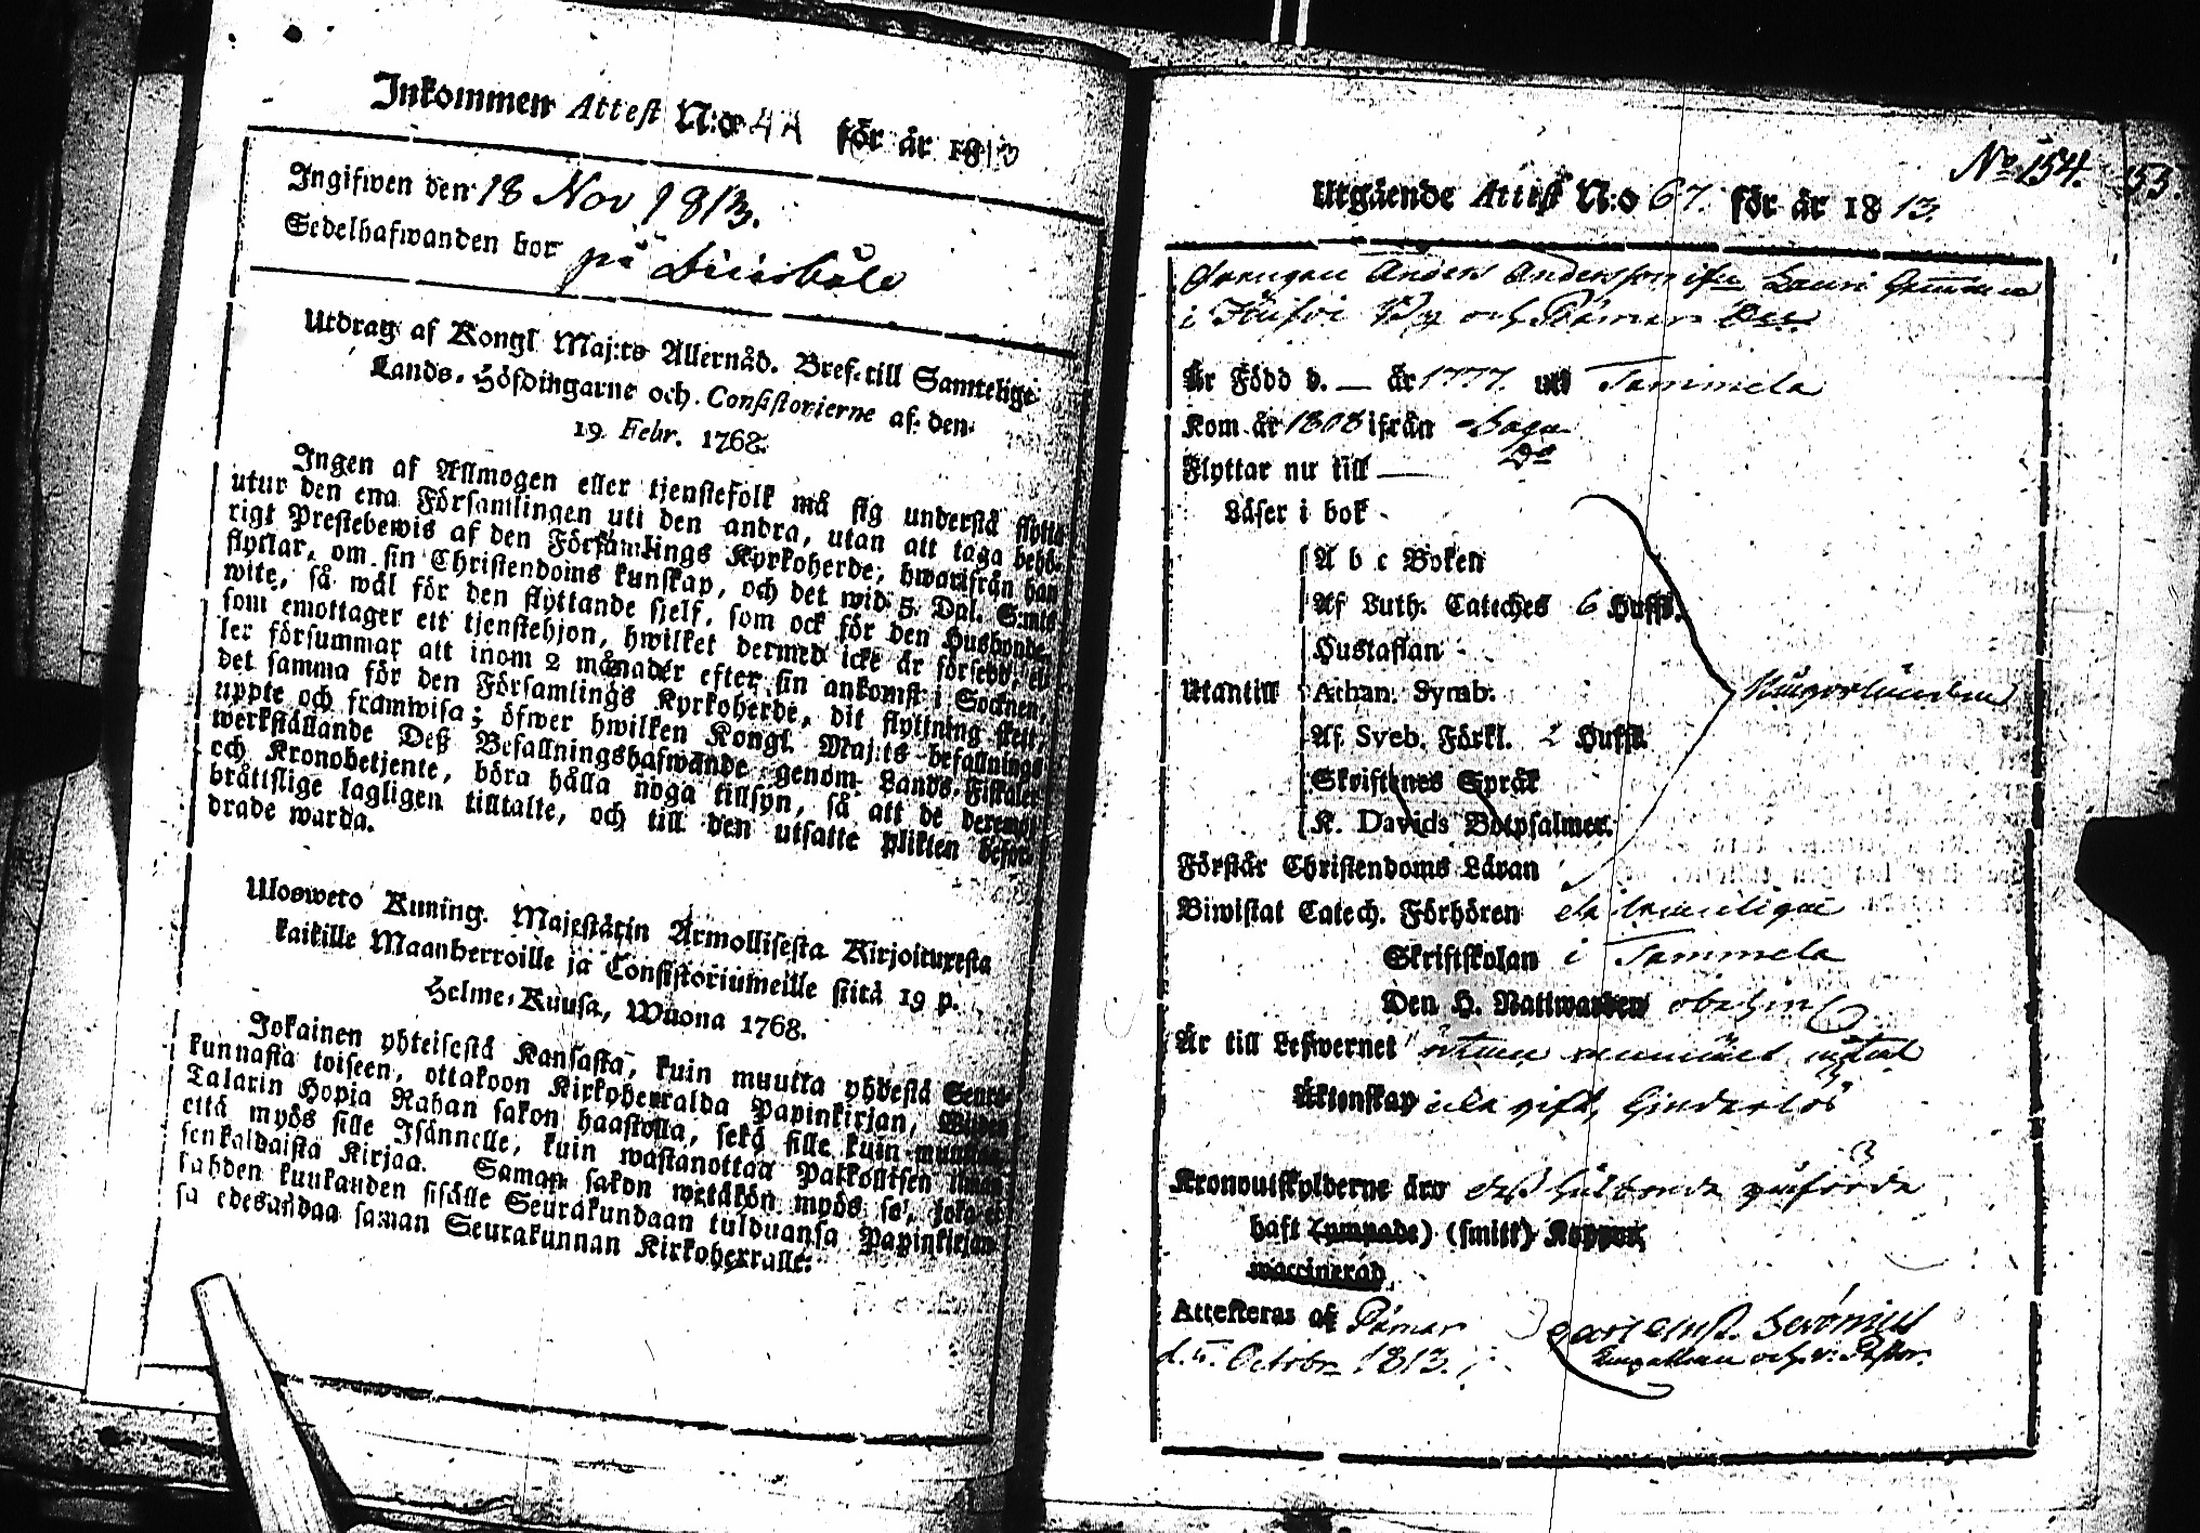 Inkommen Attest N:o 44 för år 1813
Ingifwen den 18 Nov 1813.
Sedelhafwanden bor på
Utdrag af Kongl Maj:ts Allernåd. Bref till Samtelige
Lands-Höfdingarne och Consistorierne af den
19 Febr. 1768.
Ingen af Allmogen eller tjenstefolk må sig understå flytta
utur den ena Församlingen uti den andra, utan att taga behö-
rigt Prestebewis af den Församlings Kyrkoherde, hwarifrån han
flyttar, om sin Christendoms kunskap, och det wid 5 Dal. S:mts
wite, så wäl för den flyttande sjelf, som ock för den Husbonde,
som emottager ett tjenstehjon, hwilket dermed icke är försedd, el-
ler försummar att inom 2 månader efter sin ankomst i Socknen,
det samma för den Församlings Kyrkoherde, dit flyttning skett,
uppte och framwisa; öfwer hwilken Kongl. Maj:ts befallnings
werkställande Deß Befallningshafwande genom Lands-Fiskaler
och Kronobetjente, böra hålla noga tillsyn, så att de deremot
bråttslige lagligen tilltalte, och till den utsatte plikten befor-
drade warda.
Uloswero Kuning. Majestätin Armollisesta Kirjoituxesta
kaikille Maanherroille ja Consistoriumeille siitä 19 p.
Helme-Kuusa, Wuona 1768.
Jokainen yhteisestä Kansasta, kuin muutta yhdestä Seura-
kunnasta toiseen, ottakoon Kirkoherralda Papinkirjan, Wiiden
Talarin Hopia Rahan sakon haastolla, sekä sille kuin muuttaa
että myös sille Isännelle, kuin wastanottaa Palkollisen ilman
senkaldaista Kirjaa. Saman sakon wetäkön myös se, joka ei
kahden kuukauden sisälle Seurakundaan tulduansa Papinkirjan-
sa edesandaa saman Seurakunnan Kirkoherralle.
N:o 154. 55
Utgående Attest N:o 67. för år 1813.
Drengen Anders Andersson ifrån Lauri
i By och Pämar
Är Född d. — år 1777. uti Tammela
Kom år 1808 ifrån Sagu
Flyttar nu till — D:o
Läser i bok
A b c Boken
Af Luth. Cateches 6 Hufst.
Hustaflan
Utantill Athan. Symb.
Af Sveb. Förkl. 2 Hufst.
Skriftenes Språk
K. Davids Botpsalmer.
Förstår Christendoms Läran
Biwistat Catech. Förhören
Skriftskolan i Tammela
Den H. Nattwarden
Är till Lefwernet
Äktenskap icke gift,
Kronoutskylderne äro
haft (ympade) (smitt) Koppor,
waccinerad,
Attesteras af Pämar
d. 5. Octobr 1813.